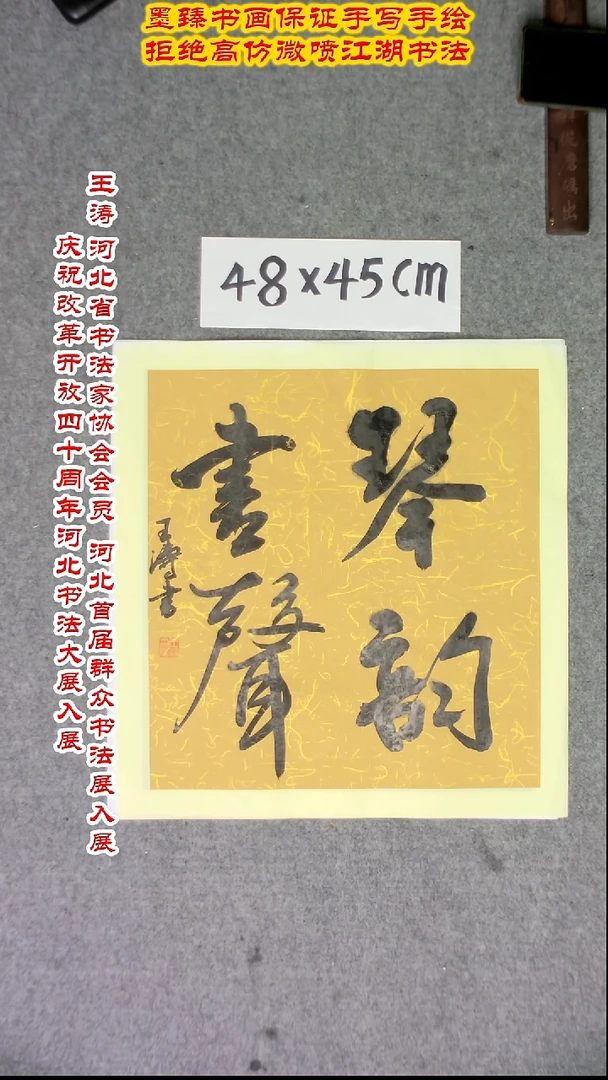 墨臻书画保证手写手绘
拒绝高仿微喷江湖书法
王涛 河北省书法家协会会员 河北首届群众书法展入展
庆祝改革开放四十周年河北书法大展入展
48×45CM
琴韵
書聲
王濤書